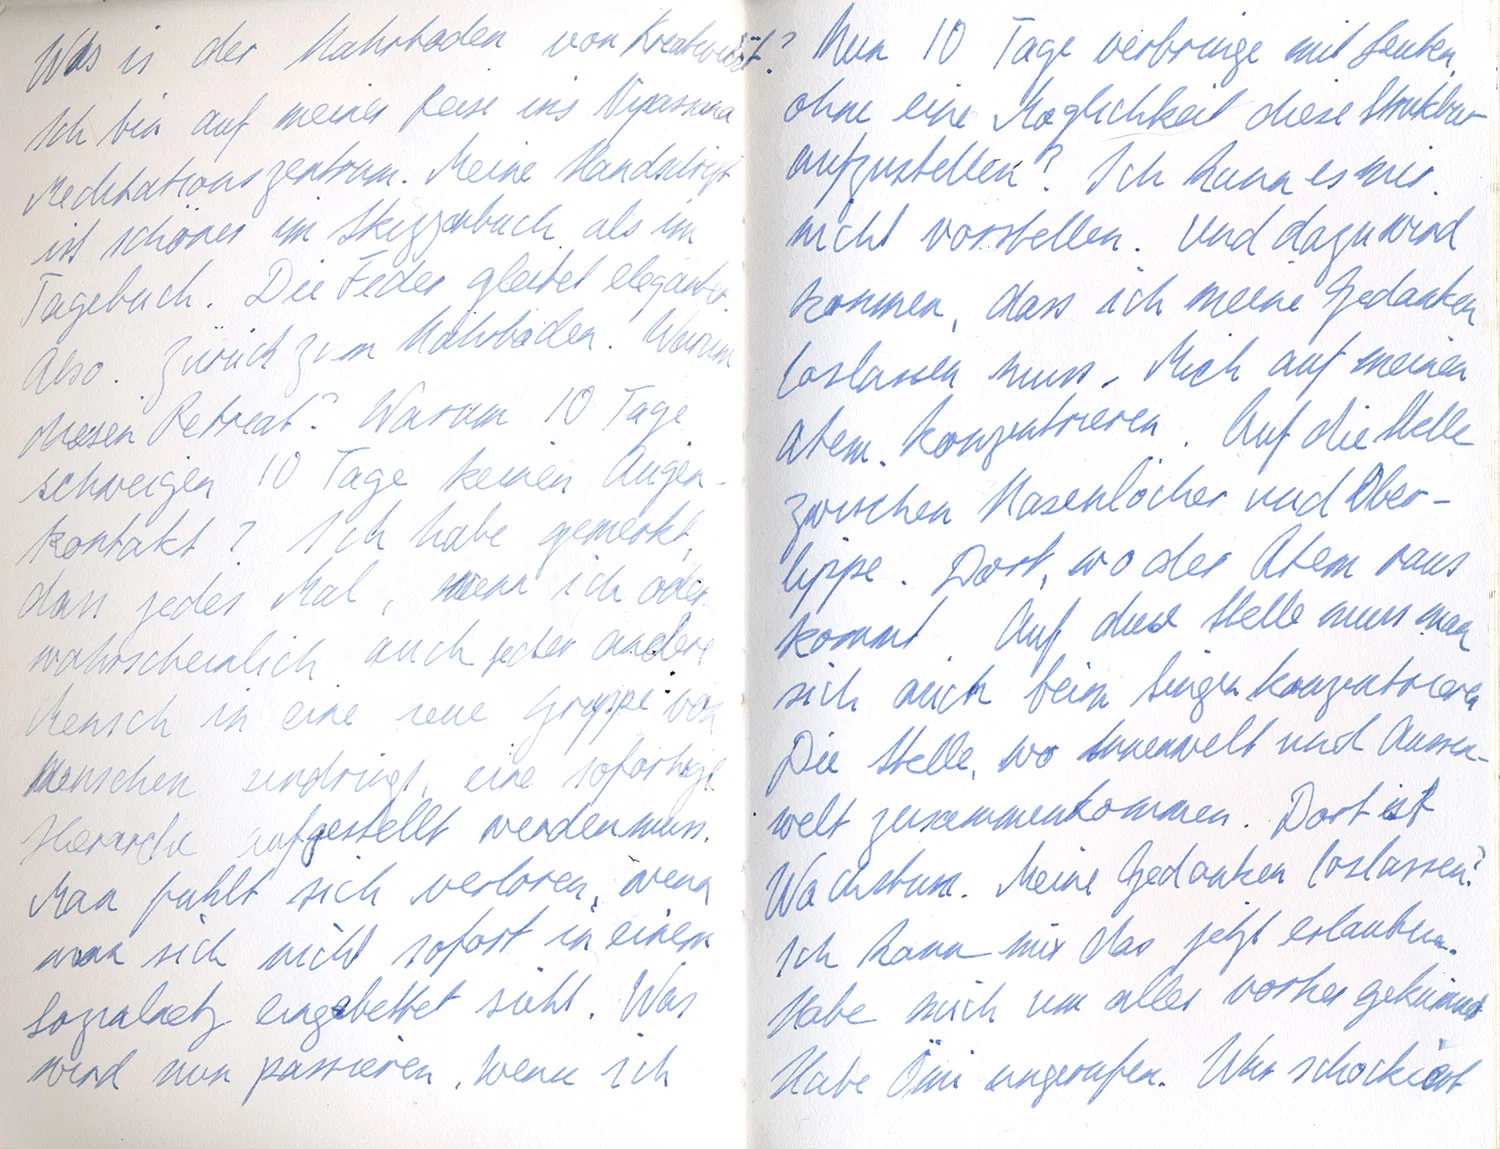 Was is der Nährboden von Kreativität?
Ich bin auf meiner Reise ins Vipassana
Meditationszentrum. Meine Handschrift
ist schöner im Skizzenbuch als im
Tagebuch. Die Feder gleitet eleganter
Also. Zurück zum Nährboden. Warum
diesen Retreat? Warum 10 Tage
schweigen 10 Tage keinen Augen-
kontakt? Ich habe gemerkt,
dass jedes Mal, wenn ich oder
wahrscheinlich auch jeder andere
Mensch in eine neue Gruppe von
Menschen eindringt, eine sofortige
Hierarchie aufgestellt werden muss.
Man fühlt sich verloren, wenn
man sich nicht sofort in einem
Sozialnetz eingebettet sieht. Was
wird nun passieren, wenn ich
Nun 10 Tage verbringe mit Leuten,
ohne eine Möglichkeit diese Struktur
aufzustellen? Ich kann es mir
nicht vorstellen. Und dazu wird
kommen, dass ich meine Gedanken
loslassen muss. Mich auf meinen
Atem. konzentrieren. Auf die Stelle
zwischen Nasenlöcher und Ober-
lippe. Dort, wo der Atem raus
kommt. Auf diese Stelle muss man
sich auch beim Singen konzentrieren
Die Stelle, wo Innenwelt und Aussen-
welt zusammenkommen. Dort ist
Wachstum. Meine Gedanken loslassen?
Ich kann mir das jetzt erlauben.
Habe mich um alles vorher gekümmert
Habe Omi angerufen. War schockiert